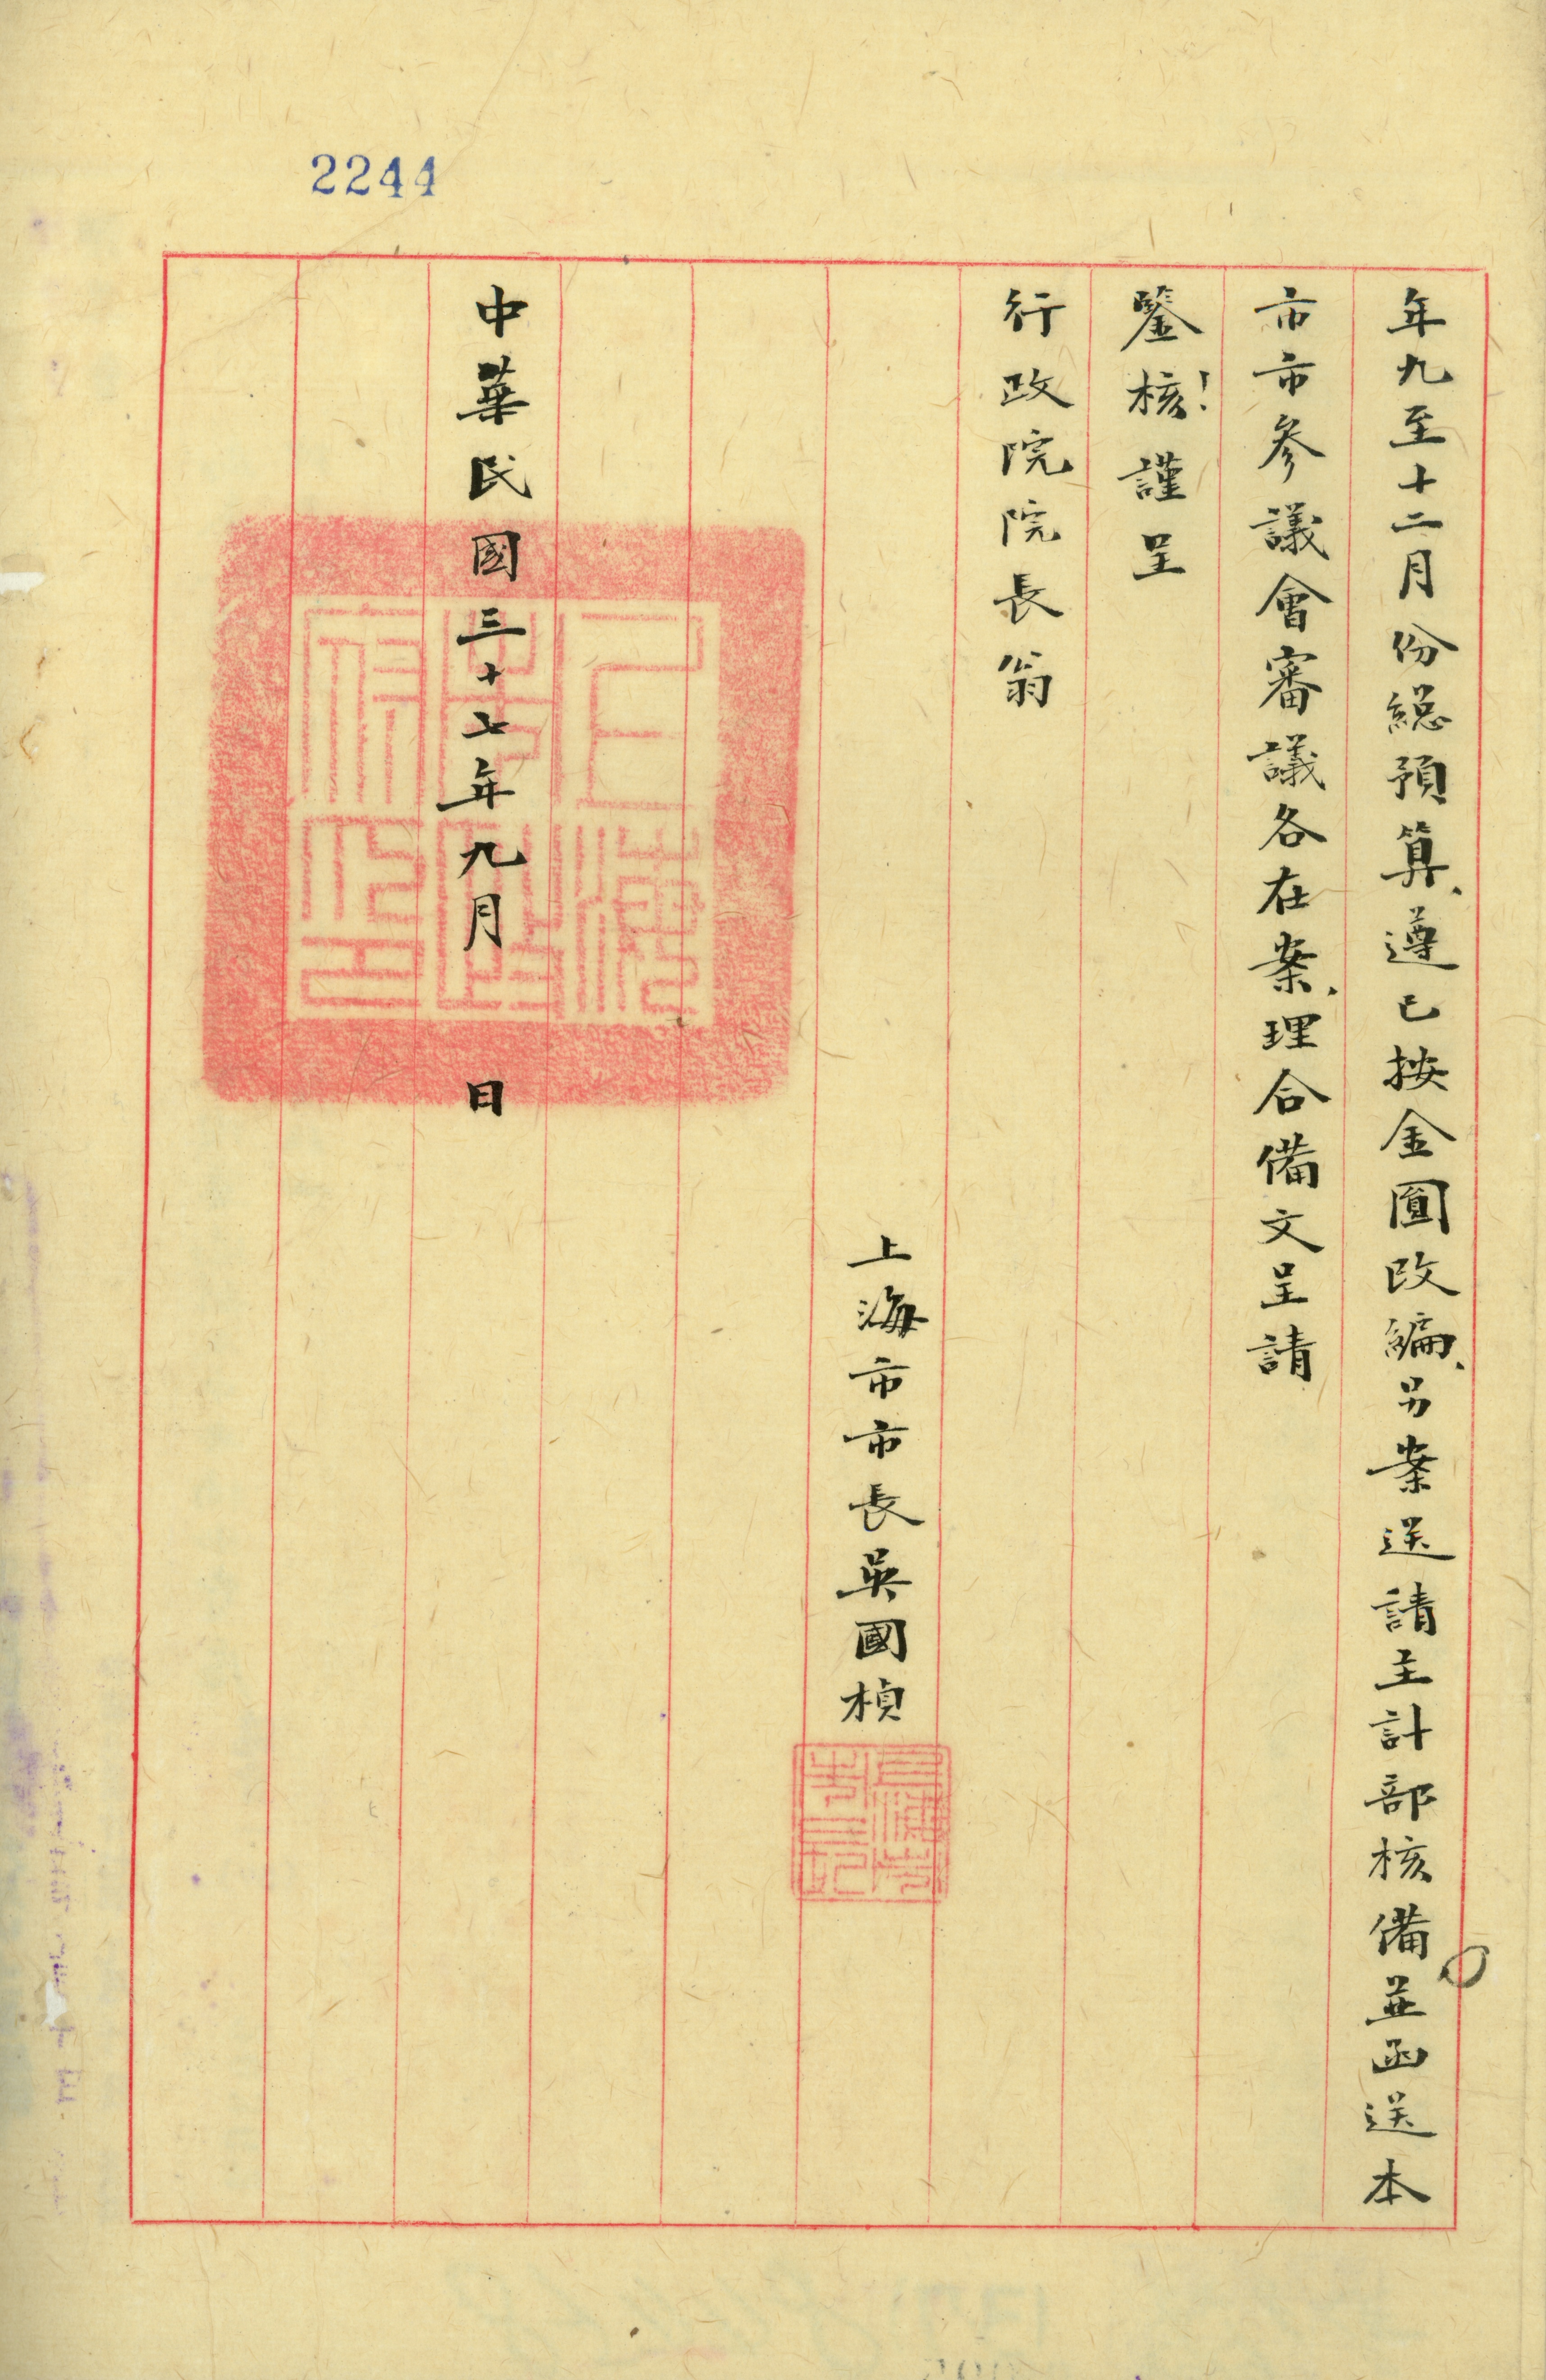 2244
年九至十二月份總預算、遵已按金圓改編、另案送請主計部核備並函送本
市市參議會審議各在案、理合備文呈請
鑒核！謹呈
行政院院長翁
上海市市長吳國楨
上海市市長記
中華民國三十七年九月　日
上海市政府之印